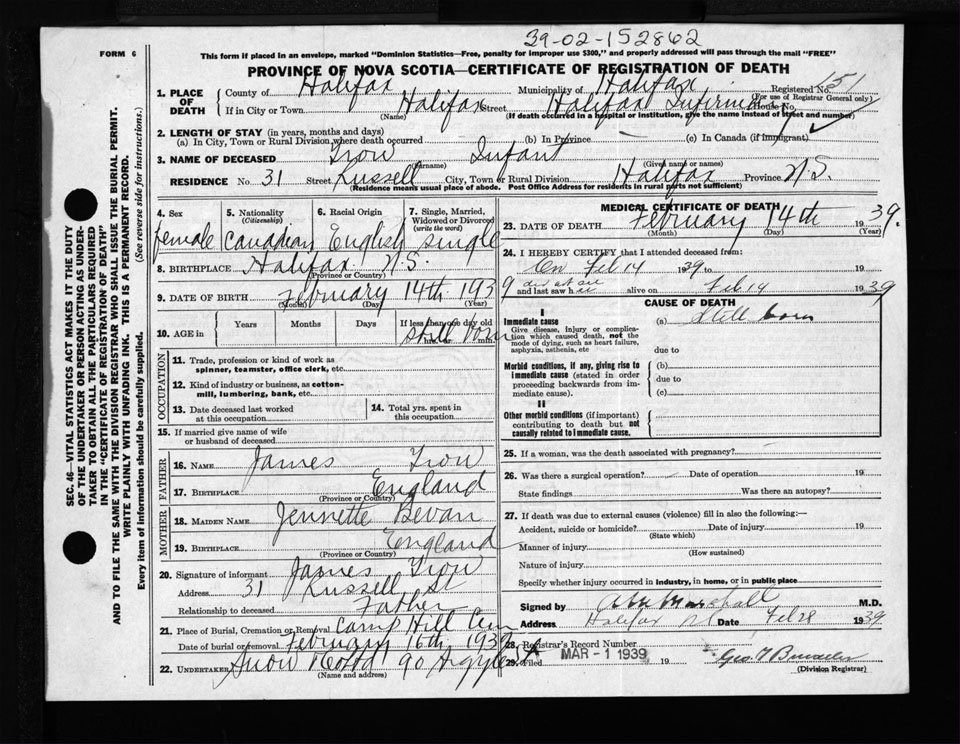 39-02-152862
FORM 6
This form if placed in an envelope, marked "Dominion Statistics—Free, penalty for improper use $300," and properly addressed will pass through the mail "FREE"
PROVINCE OF NOVA SCOTIA—CERTIFICATE OF REGISTRATION OF DEATH
1. PLACE OF DEATH
County of Halifax Municipality of Halifax Registered No. 151
(For use of Registrar General only)
If in City or Town Halifax Street Halifax Infirmary House No.
(Name) (If death occurred in a hospital or institution, give the name instead of street and number)
2. LENGTH OF STAY (in years, months and days)
(a) In City, Town or Rural Division where death occurred (b) In Province (c) In Canada (if immigrant)
3. NAME OF DECEASED Trow Infant
(Surname) (Given name or names)
RESIDENCE No 31 Street Russell City, Town or Rural Division Halifax Province N.S.
(Residence means usual place of abode. Post Office Address for residents in rural parts not sufficient)
4. Sex 5. Nationality (Citizenship) 6. Racial Origin 7. Single, Married, Widowed or Divorced (write the word)
female Canadian English single
8. BIRTHPLACE Halifax N.S.
(Province or Country)
9. DATE OF BIRTH February 14th 1939
(Month) (Day)
10. AGE in Years Months Days If less than one day old
still born
hrs. or min.
OCCUPATION
11. Trade, profession or kind of work as
spinner, teamster, office clerk, etc.
12. Kind of industry or business, as cotton-
mill, lumbering, bank, etc.
13. Date deceased last worked
at this occupation
14. Total yrs. spent in
this occupation
15. If married give name of wife
or husband of deceased
FATHER
16. NAME James Trow
17. BIRTHPLACE England
(Province or Country)
MOTHER
18. MAIDEN NAME Jennette Bevan
19. BIRTHPLACE England
(Province or Country)
20. Signature of informant James Trow
Address 31 Russell St
Relationship to deceased Father
21. Place of Burial, Cremation or Removal Camp Hill Cem
Date of burial or removal February 16th 1939
22. UNDERTAKER Snow 90 Argyle St
(Name and address)
MEDICAL CERTIFICATE OF DEATH
23. DATE OF DEATH February 14th 1939.
(Month) (Day) (Year)
24. I HEREBY CERTIFY that I attended deceased from:
On Feb 14 1939 to 19
and last saw h alive on Feb 14 1939
CAUSE OF DEATH
I
Immediate cause
Give disease, injury or complica-
tion which caused death, not the
mode of dying, such as heart failure,
asphyxia, asthenia, etc
(a) Still born
due to
Morbid conditions, if any, giving rise to
immediate cause (stated in order
proceeding backwards from im-
mediate cause).
(b)
due to
(c)
II
Other morbid conditions (if important)
contributing to death but not
causally related to immediate cause.
25. If a woman, was the death associated with pregnancy?
26. Was there a surgical operation? Date of operation 19
State findings Was there an autopsy?
27. If death was due to external causes (violence) fill in also the following:—
Accident, suicide or homicide? Date of injury 19
(State which)
Manner of injury
(How sustained)
Nature of injury
Specify whether injury occurred in industry, in home, or in public place
Signed by Marshall M.D.
Address Halifax Date Feb 28 1939
28. Registrar's Record Number
29. Filed MAR - 1 1939 19
(Division Registrar)
SEC. 46—VITAL STATISTICS ACT MAKES IT THE DUTY
OF THE UNDERTAKER OR PERSON ACTING AS UNDER-
TAKER TO OBTAIN ALL THE PARTICULARS REQUIRED
IN THE "CERTIFICATE OF REGISTRATION OF DEATH"
AND TO FILE THE SAME WITH THE DIVISION REGISTRAR WHO SHALL ISSUE THE BURIAL PERMIT.
WRITE PLAINLY WITH UNFADING INK. THIS IS A PERMANENT RECORD.
Every item of information should be carefully supplied. (See reverse side for instructions.)